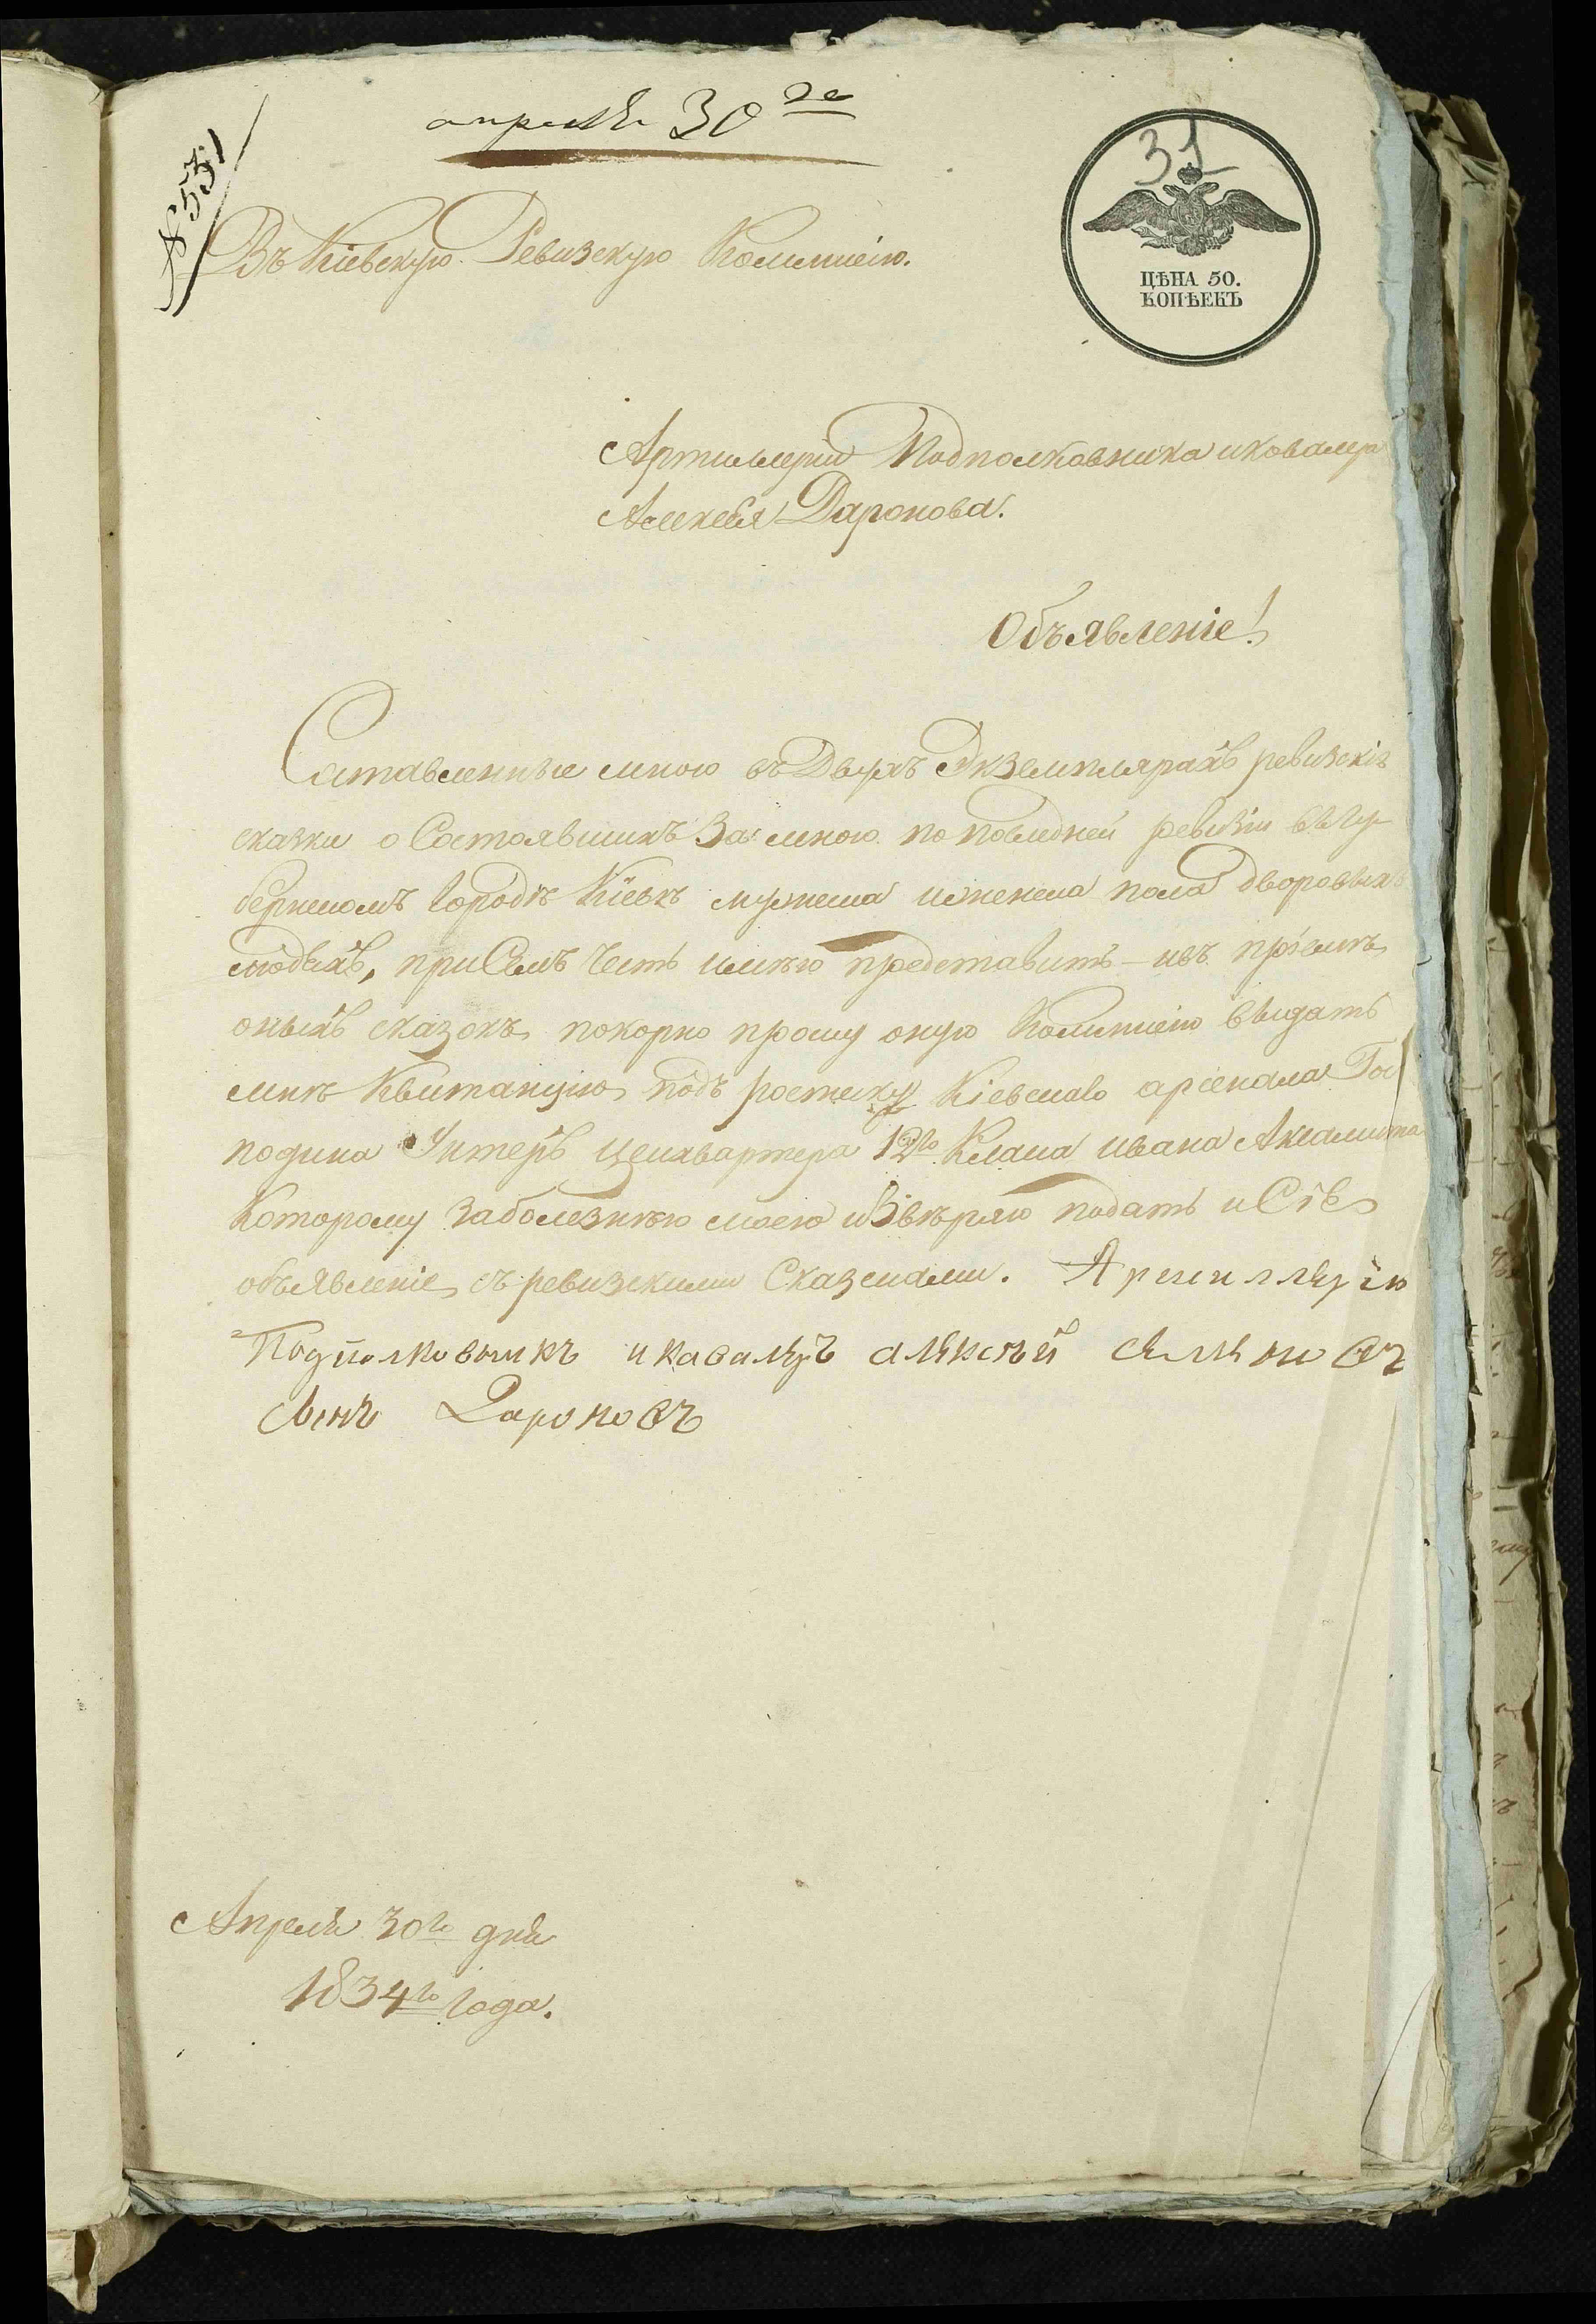 апреля 30го
31
ЦѢНА 50.
КОПѢЕКЪ
Въ Кіевскую Ревизскую Коммисію.
Артиллеріи Подполковника и ковалера
Алексѣя Даронова.
Объявленіе!
Составленные мною въ Двухъ Экземплярахъ ревизскія
сказки о Состоявшихъ За мною по последней ревизіи въ Гу
бернскомъ городѣ Кіевѣ мужеска и женска пола дворовыхъ
людяхъ, при Семъ Честь имѣю представить - и въ пріемѣ
оныхъ сказокъ покорно прошу оную Коммисію выдать
мнѣ Квитанцію подъ росписку Кіевскаго арсенала Гос
подина Унтеръ Цейхвартера 12го Класа ивана
Которому за болезнѣю моею и ввѣряю подать и Сіе
объявленіе съ ревизскими Сказками. Артиллеріи
Подполковникъ и кавалеръ алексѣй
сынъ Дароновъ
Апреля 30го дня
1834го года.